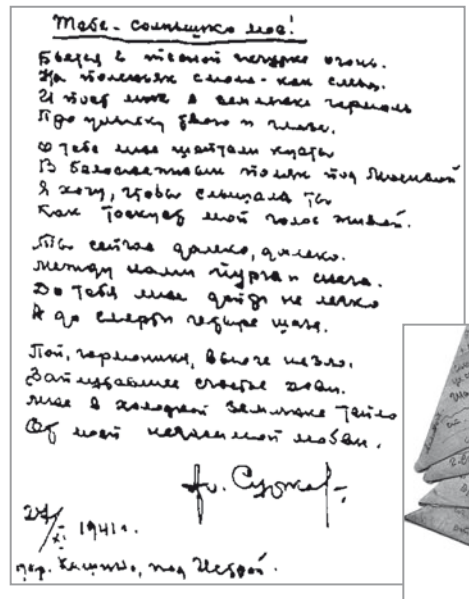 Тебе - солнышко мое!
Бьется в тесной печурке огонь.
На поленьях смола - как слеза.
И поет мне в землянке гармонь
Про улыбку твою и глаза.
О тебе мне шептали кусты
В белоснежных полях под Москвой
Я хочу, чтобы слышала ты
Как тоскует мой голос живой.
Ты сейчас далеко, далеко.
Между нами снега и снега.
До тебя мне дойти не легко
А до смерти четыре шага.
Пой, гармоника, вьюге на зло.
Заплутавшее счастье зови.
Мне в холодной землянке тепло
От моей негасимой любви.
А. Сурков
27/XI 1941 г.
под Истрой.